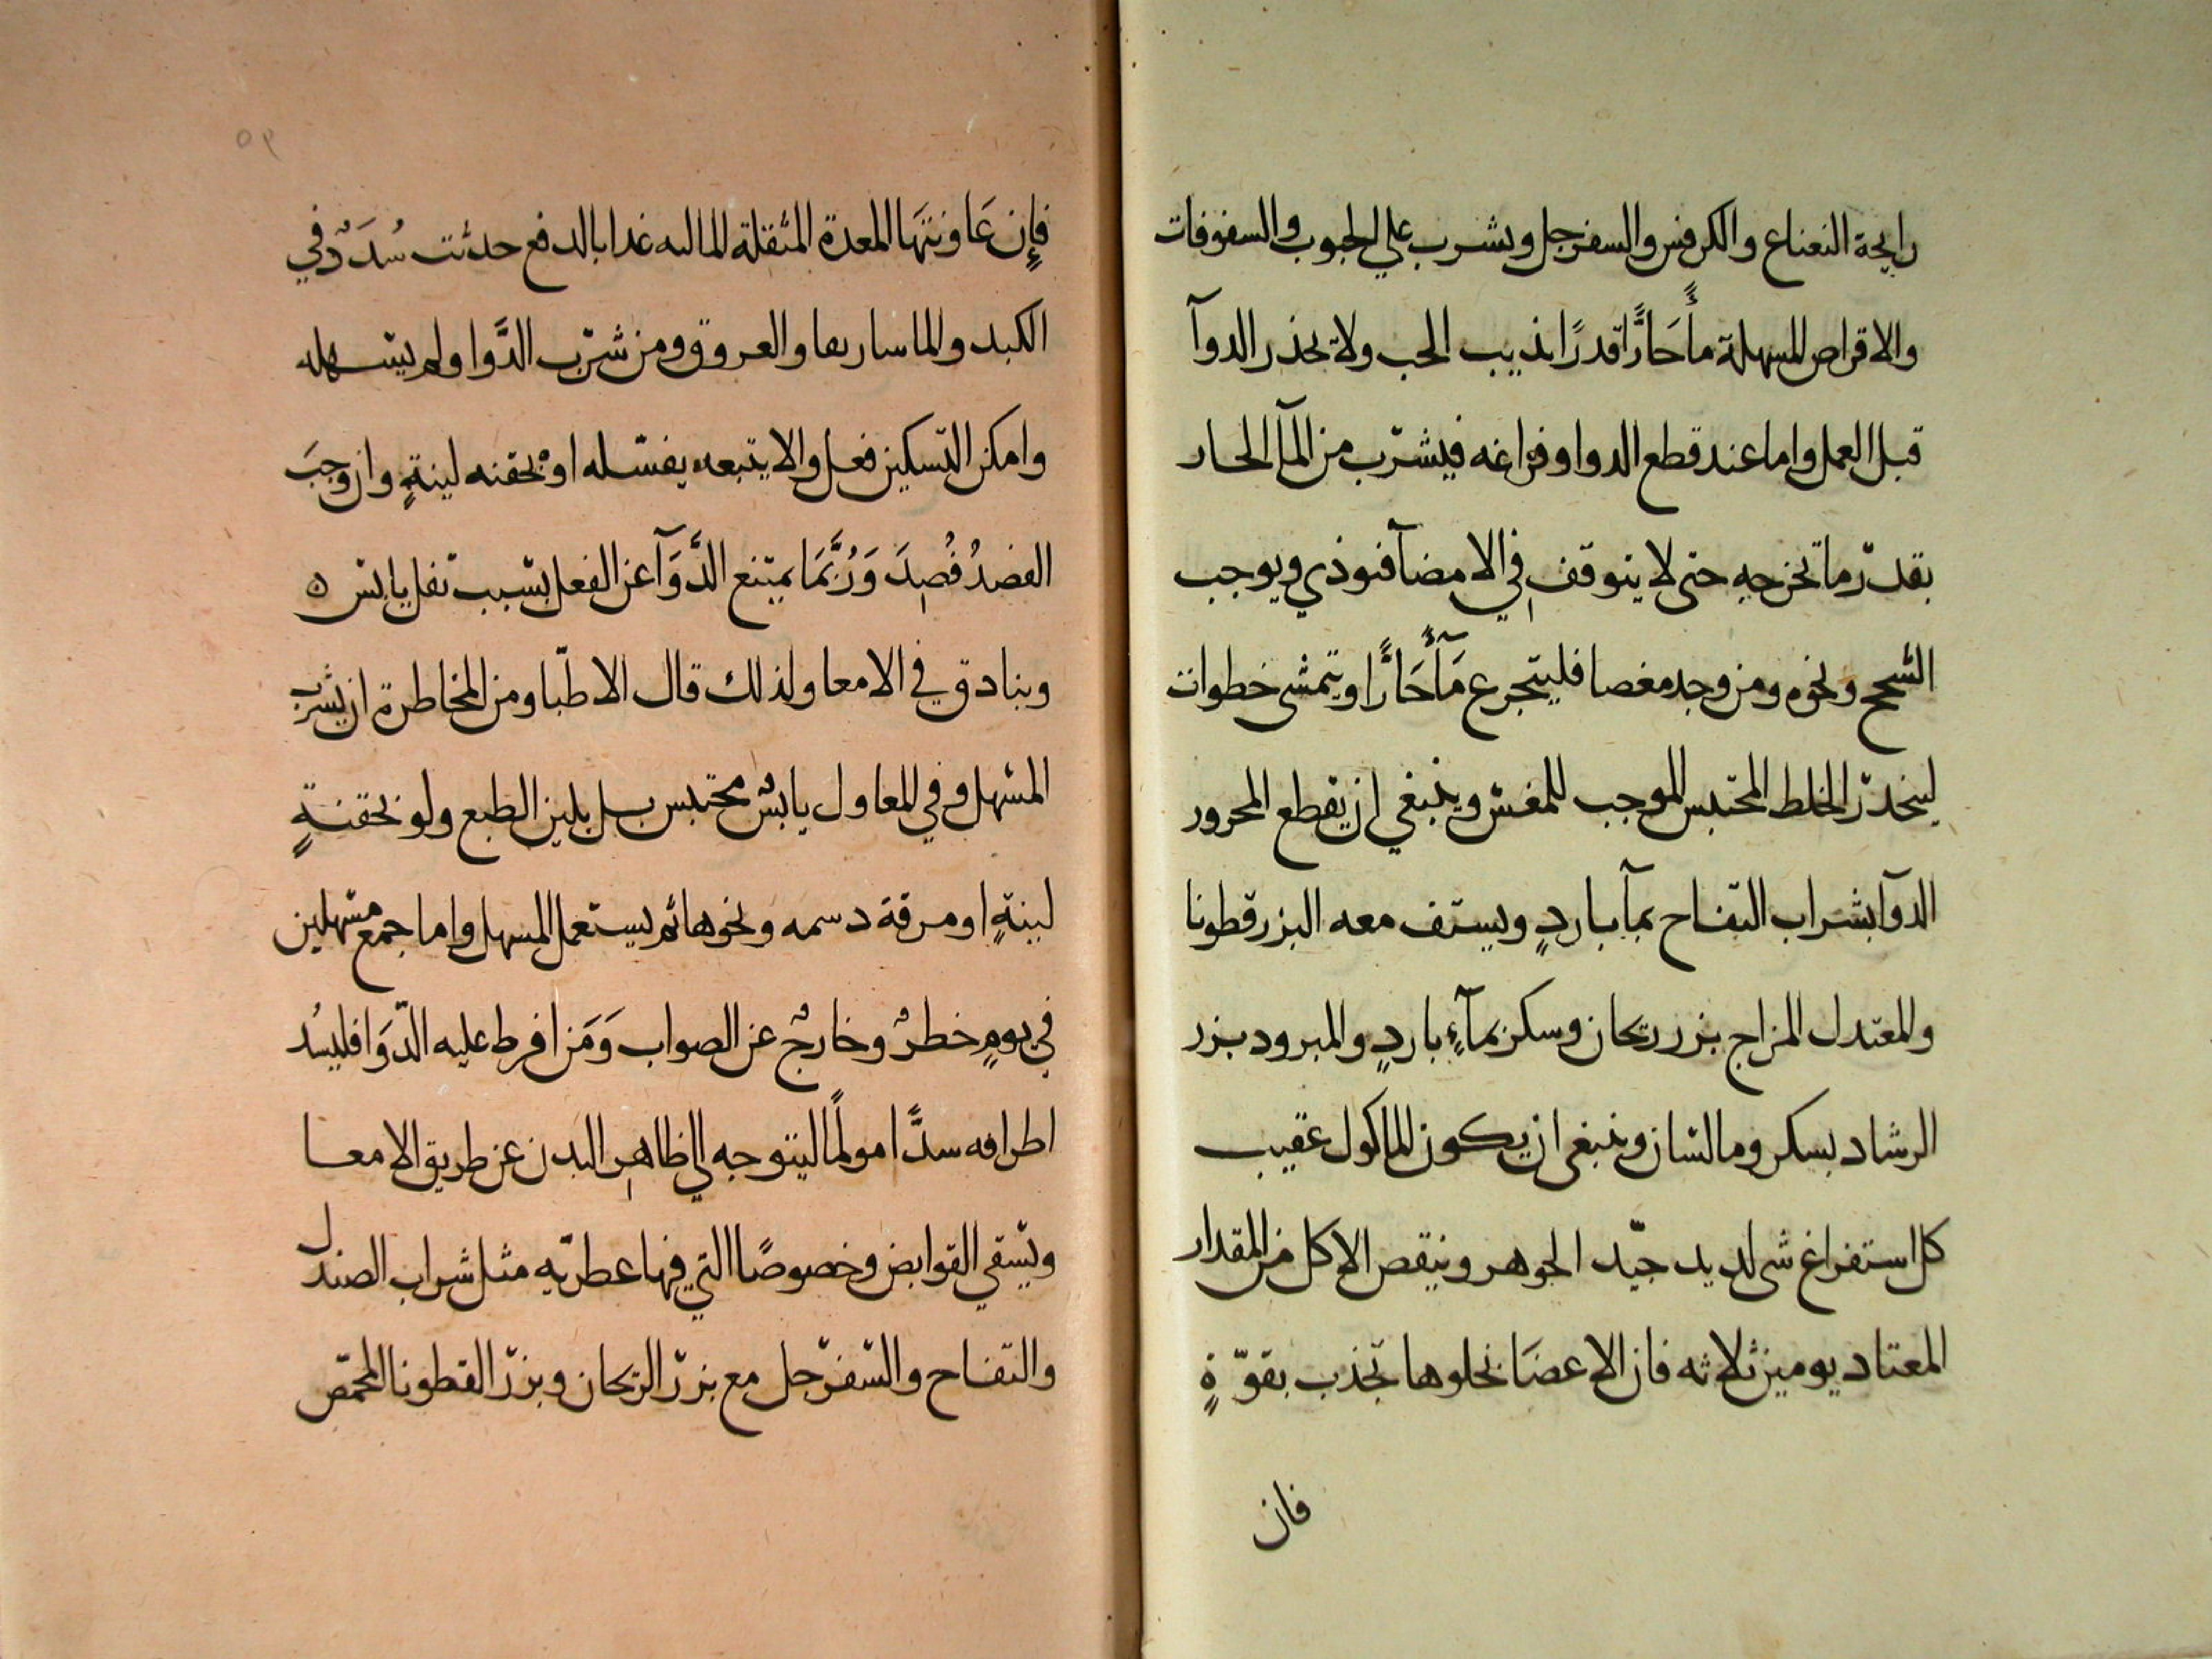 رايحة النعناع والكرفس والسفرجل ويشرب على الحبوب والسفوفات
والاقراص المسهلة ماءً حَارًّا قدرًا يذيب الحب ولا يحذر الدوآ
قبل العمل واما عند قطع الدوا وفراغه فيشرب من المآ الحار
بقدر ما تخرجه حتى لا يتوقف في الامضآ فنوذي ويوجب
السحج ونحوه ومن وجد مغصا فليتجرع مَآءً حَارًّا ويتمشى خطوات
لينحدر الخلط المحتبس الموجب للمغس وينبغي ان يقطع المحرور
الدوآ بشراب التفاح بمآ باردٍ ويستف معه البزرقطونا
والمعتدل المزاج بزر ريحان وسكر بمآءٍ باردٍ والمبرود بزر
الرشاد بسكر وما لسان وينبغي ان يكون الماكول عقيب
كل استفراغ شى لديد جيّد الجوهر وينقص الاكل من المقدار
المعتاد يومين ثلاثه فان الاعضَا بخلوها تجذب بقوّةٍ
فان
٥٩
فإن عَاونتهَا المعدة المثقلة المالىه غدا بالدفع حدثت سُدَدٌ في
الكبد والماساريقا والعروق ومن شرب الدَّوا ولم يسهله
وامكن التسكين فعل والا يتبعه بفسله او بحقنه لينةٍ وان وجبَ
الفصدُ فُصِدَ وَرُبَّمَا يمتنع الدَّوَآ عن الفعل بسبب ثفل يابس ه
وبنادق في الامعا ولذلك قال الاطبّا ومن المخاطرة ان يشرب
المسهل وفي المعا ول يابسٌ محتبس بل يلين الطبع ولو بحقنةٍ
لينةٍ او مرقة دسمه ونحوها ثم يستعمل المسهل واما جمع مسهلين
في يومٍ خطرٌ وخارجٌ عن الصواب وَمَن افرط عليه الدّوَا فليسُد
اطرافه سدًّا مولمًا ليتوجه الي ظاهرِ البدن عن طريق الامعا
ويسقي القوابض وخصوصًا التي فيها عطريّه مثل شراب الصندل
والتفاح والسفرجل مع بزر الريحان وبزر القطونا المحمّص